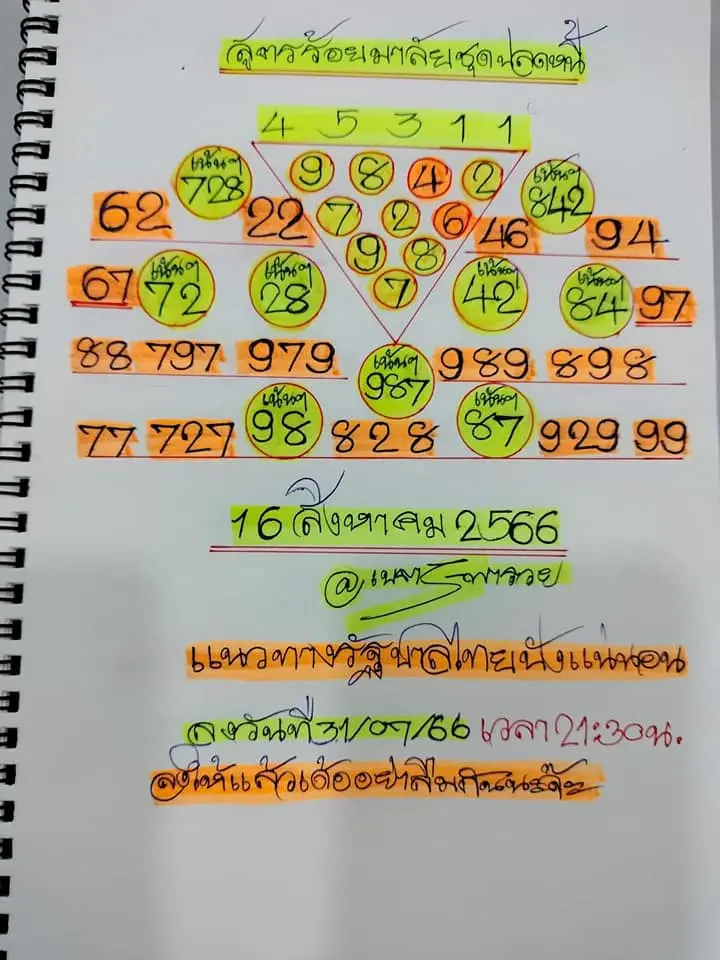 สูตรร้อยมาลัยชุดปลดหนี้
4 5 3 1 1
เน้นๆ 9 8 4 2 เน้นๆ
62 728 22 7 2 6 46 842 94
9 8
67 เน้นๆ 72 เน้นๆ 28 7 เน้นๆ 42 เน้นๆ 84 97
88 797 979 เน้นๆ 987 989 898
77 727 เน้นๆ 98 828 เน้นๆ 87 929 99
16 สิงหาคม 2566
แนวทางรัฐบาลไทยปังแน่นอน
ลงวันที่ 31/07/66 เวลา 21:30น.
ลงให้แล้วเด้ออย่าลืมกันนะจ๊ะ